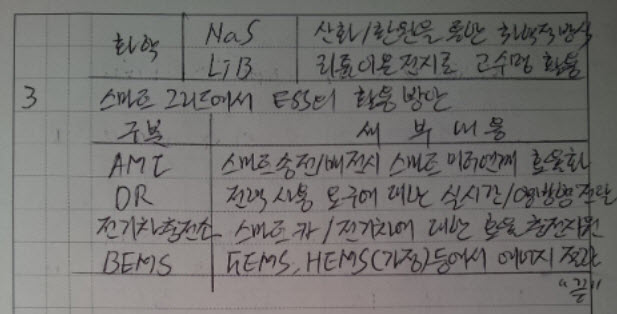 화학 NaS 산화/환원을 통한 화학적 방식
LIB 리튬이온전지로 고수명 활용
3 스마트 그리드에서 ESS의 활용방안
구분 세부내용
AMI 스마트송전/배전시 스마트미터연계 효율화
DR 전력사용 요구에 대한 실시간/양방향 전달
전기차충전소 스마트 카/전기차에 대한 효율 충전지원
BEMS FEMS, HEMS(가정)등에서 에너지 절감
"끝"